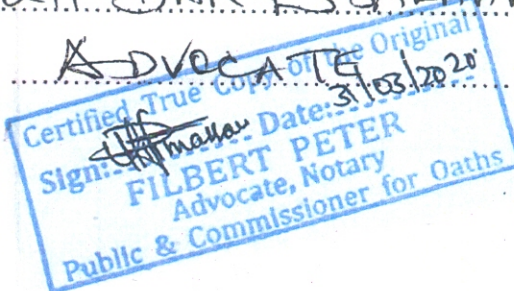 ADVOCATE
Certified True Copy of the Original
Sign: Date: 31/03/2020
FILBERT PETER
Advocate, Notary
Public & Commissioner for Oaths